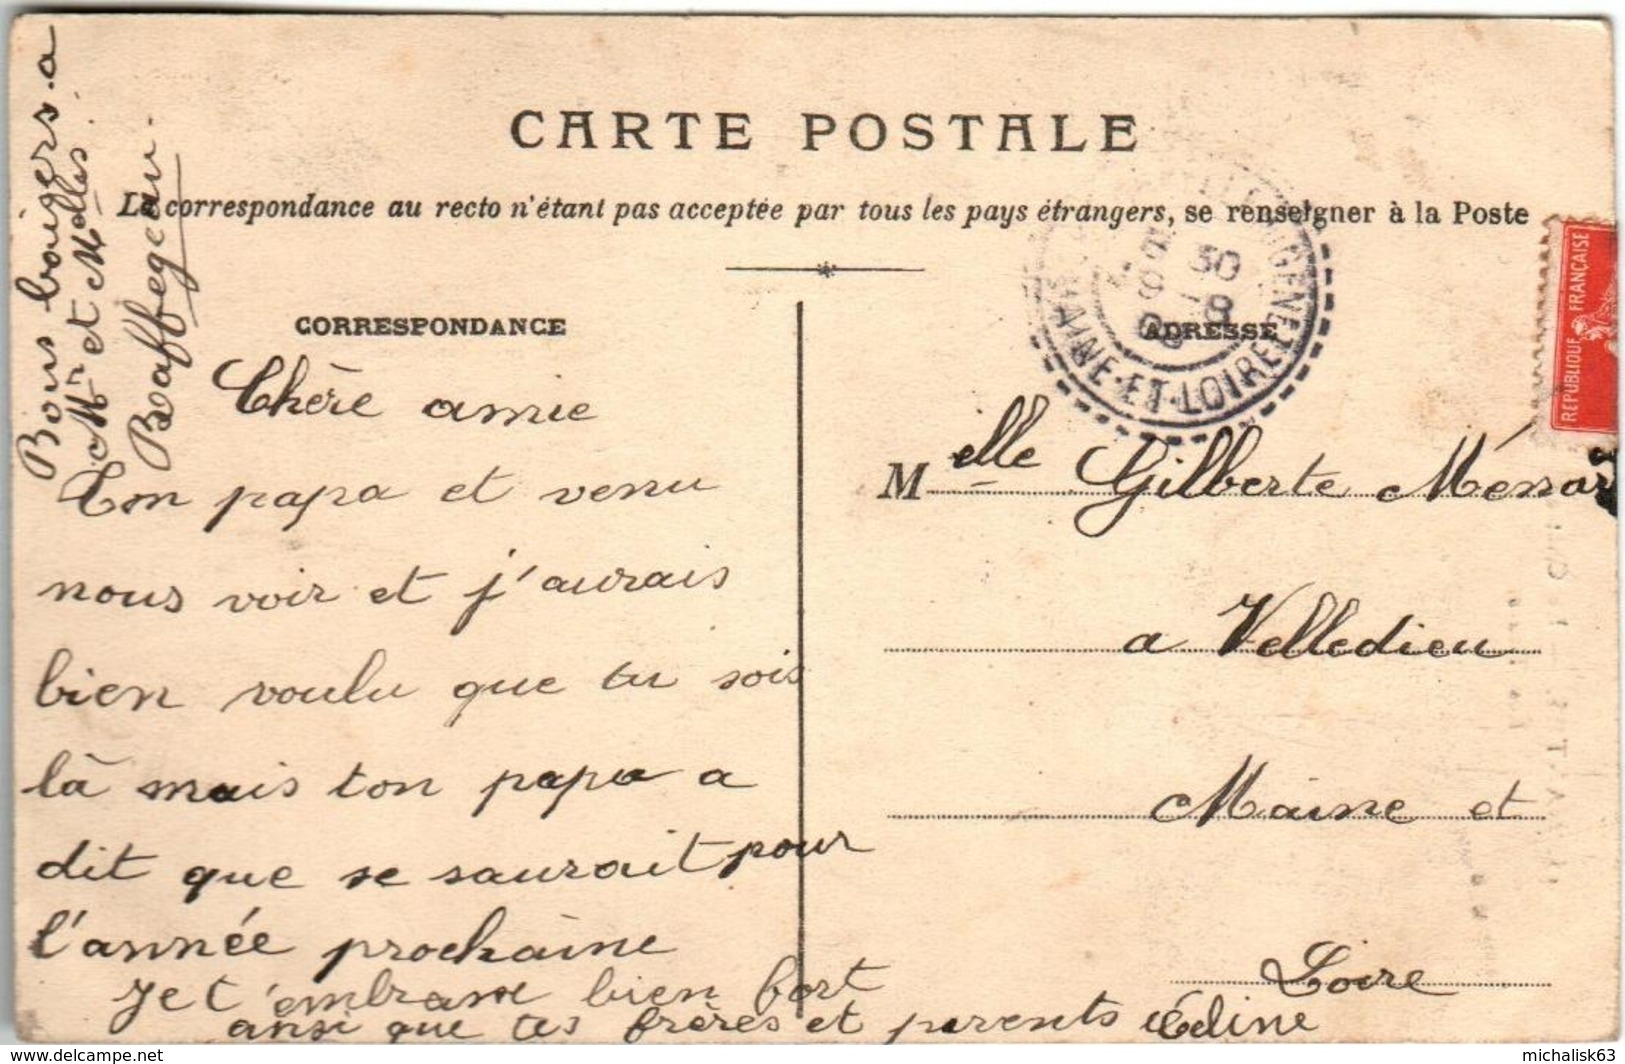 CARTE POSTALE
La correspondance au recto n'étant pas acceptée par tous les pays étrangers, se renseigner à la Poste
CORRESPONDANCE
ADRESSE
Bons baisers a
Mr et Mdlles
Chère amie
Ton papa et venu
nous voir et j'aurais
bien voulu que tu sois
là mais ton papa a
dit que se saurait pour
l'année prochaine
Je t'embrasse bien fort
ansi que tes frères et parents Céline
Melle Gilberte
a Velledieu
Maine et
Loire
MAINE-ET-LOIRE
30
REPUBLIQUE FRANÇAISE
delcampe.net
michalisk63